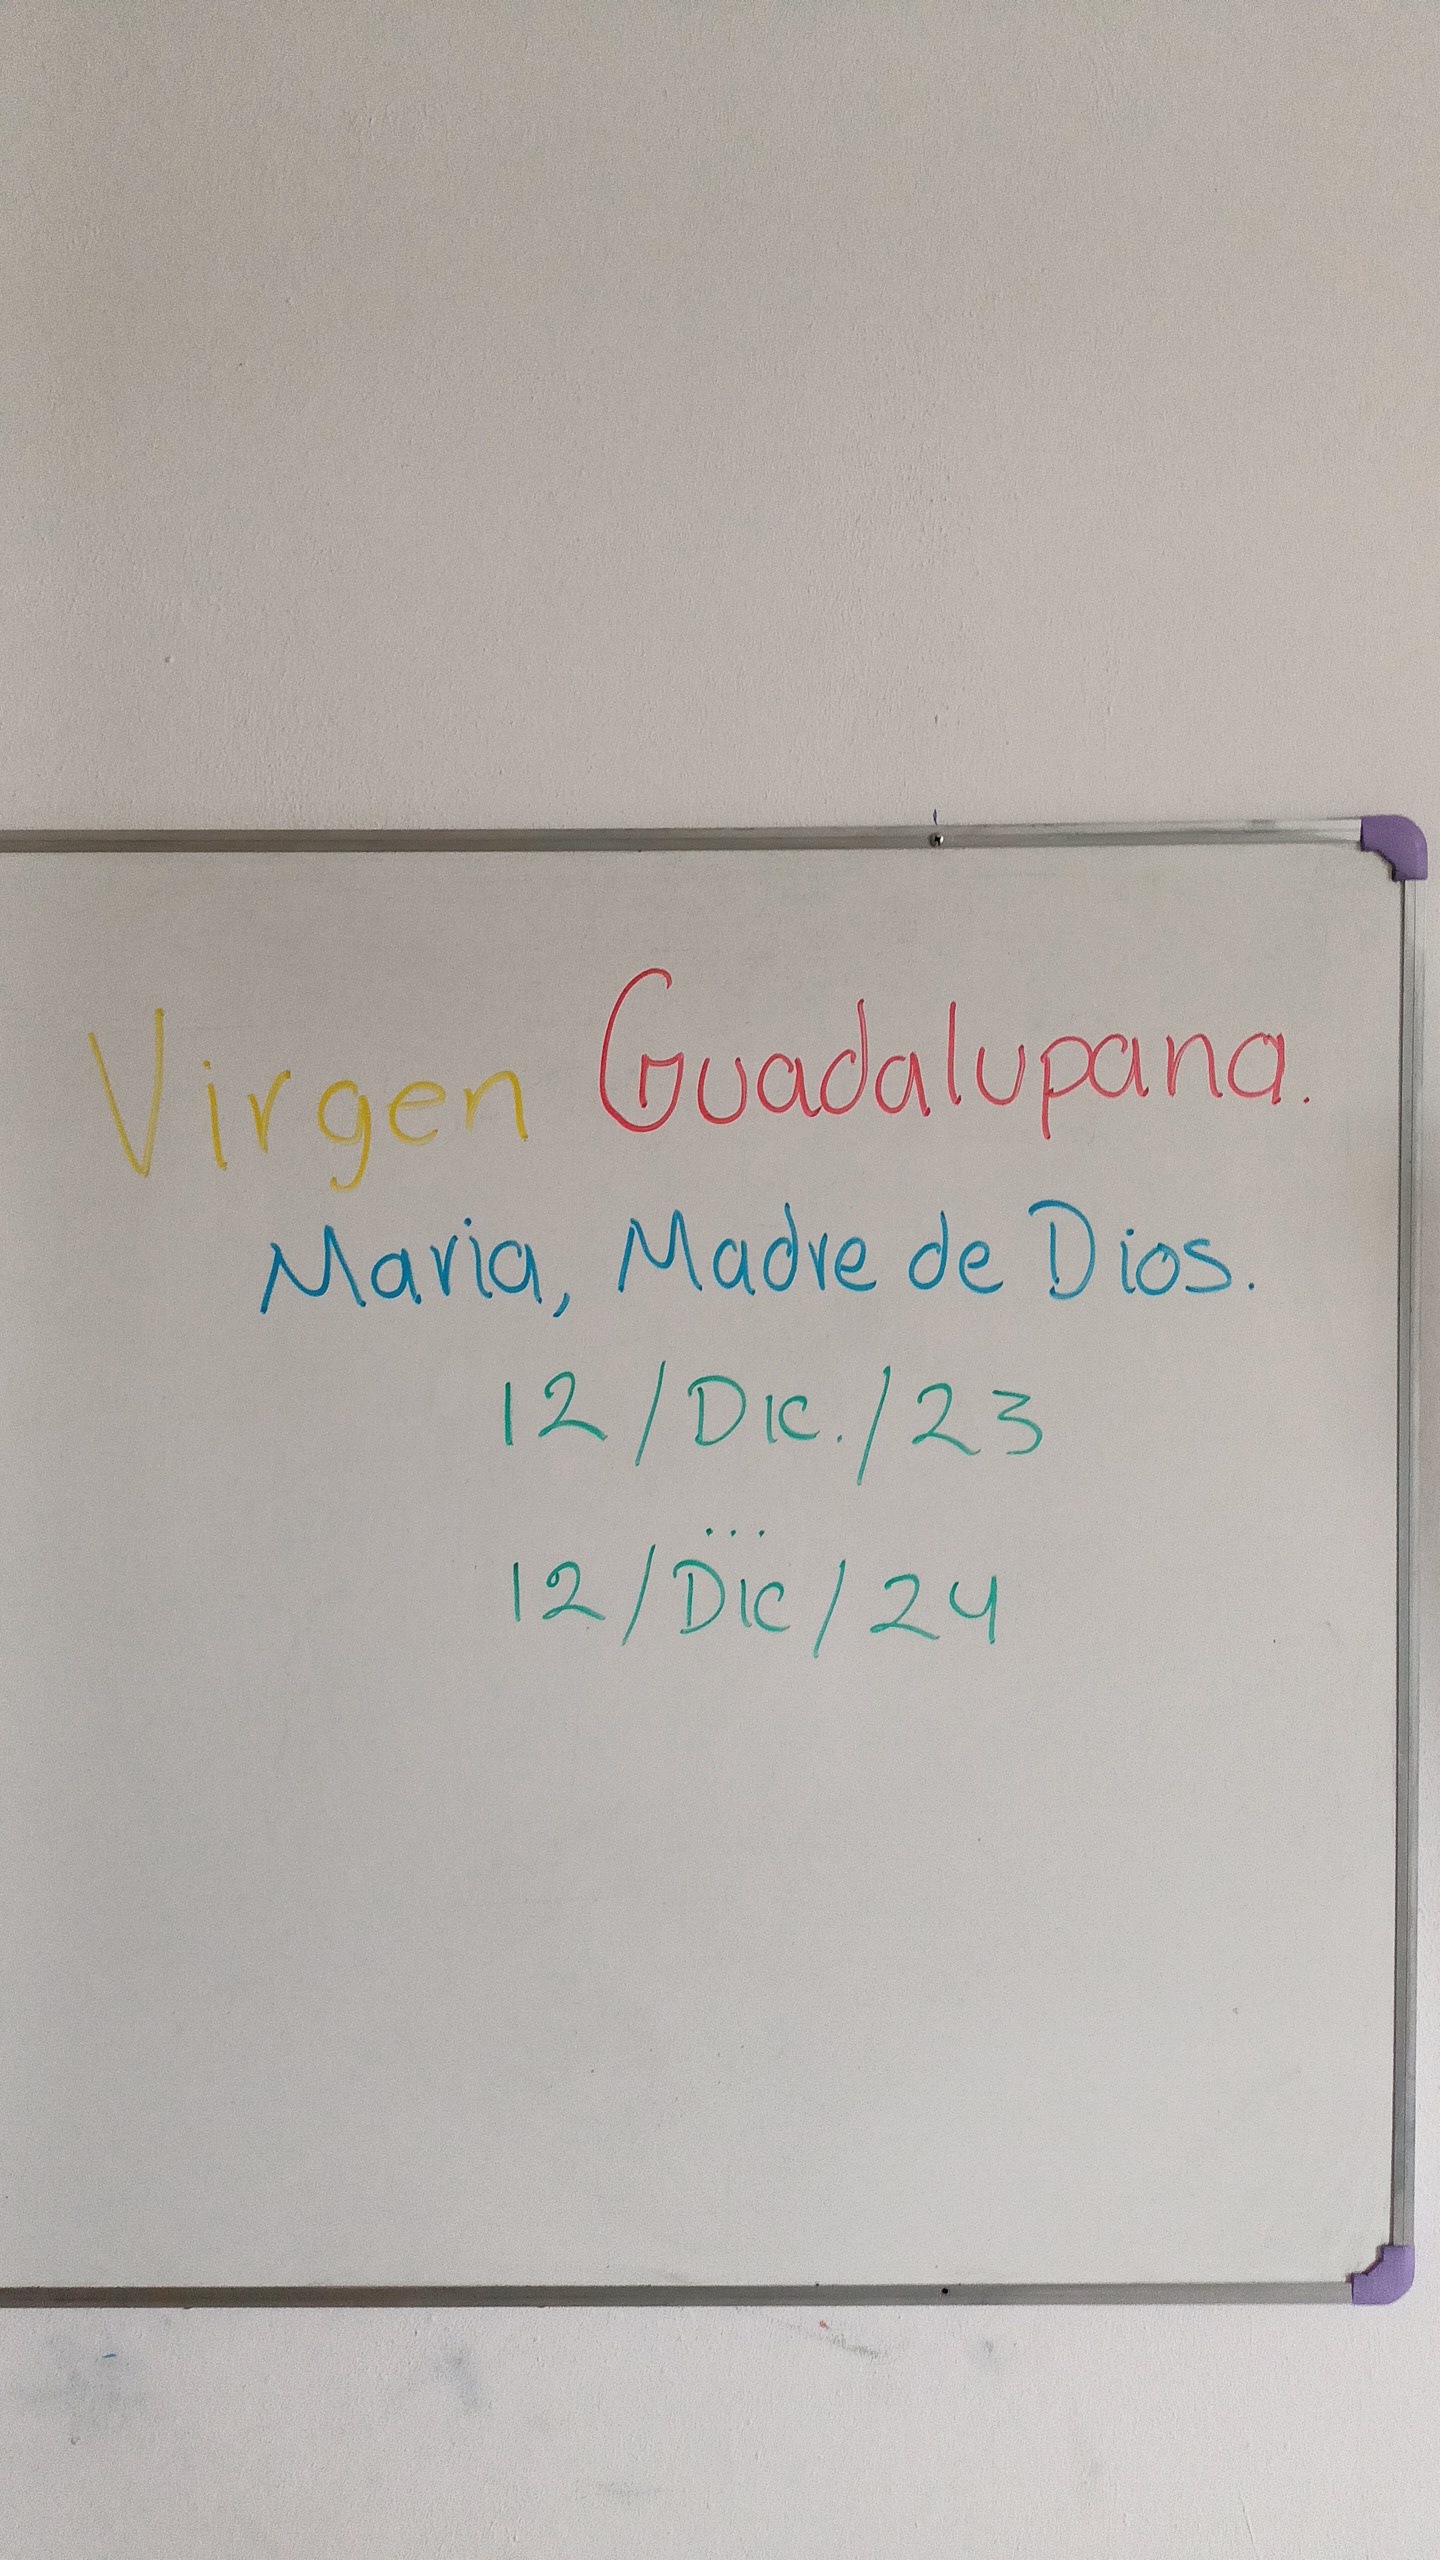 Virgen Guadalupana.
Maria, Madre de Dios.
12/Dic./23
...
12/Dic/24